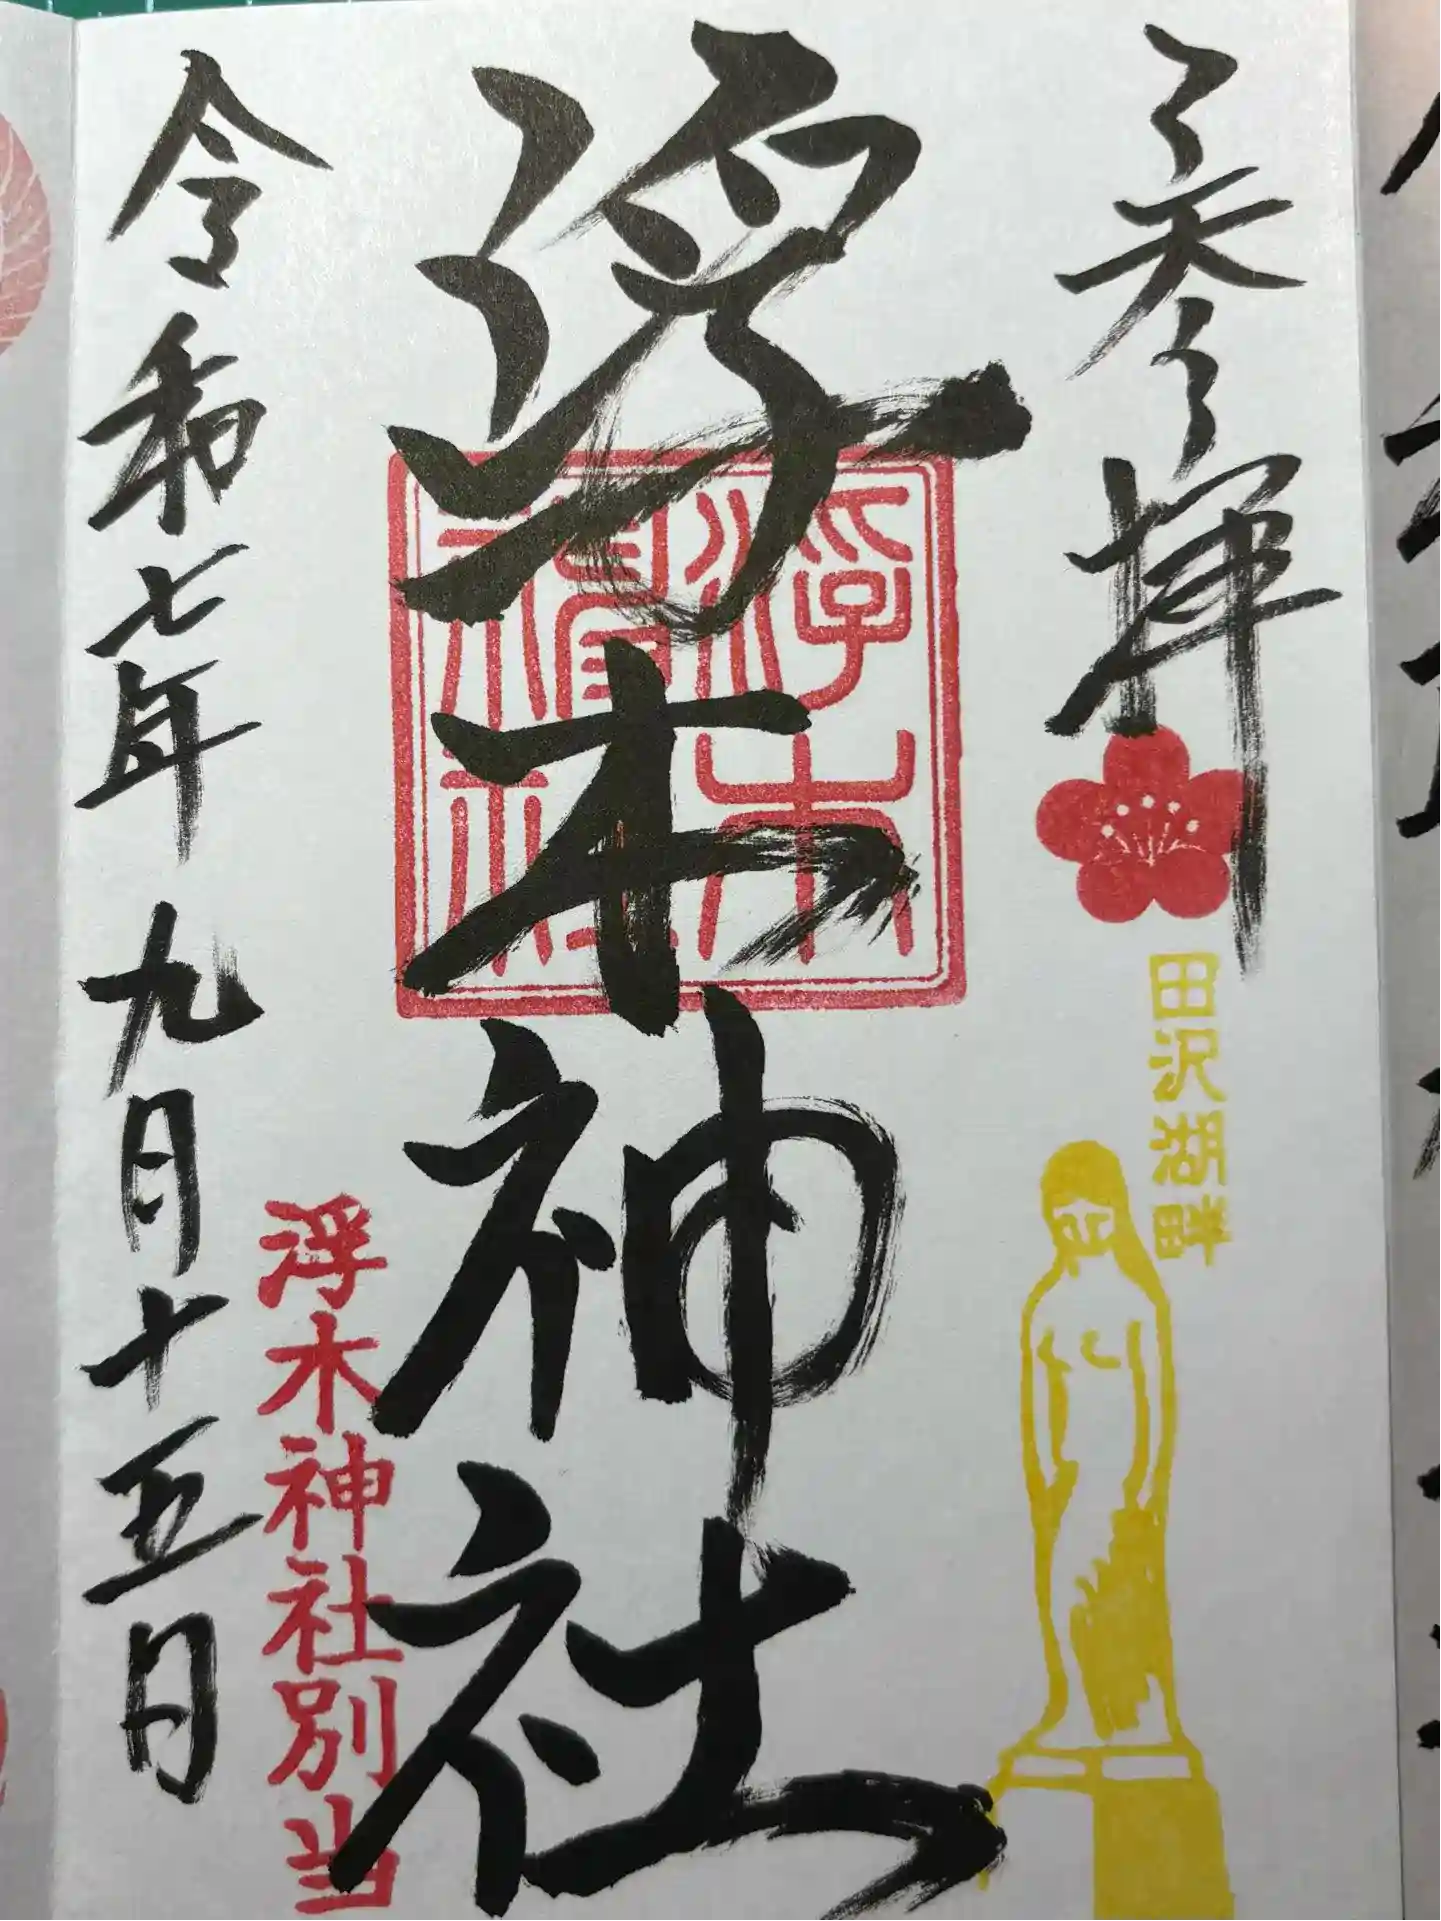 参拝
田沢湖畔
浮木神社
浮木神社
浮木神社別当
令和七年九月十五日